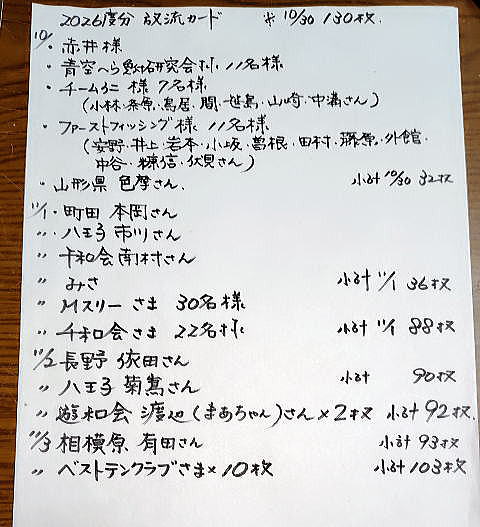 2026度分 放流カード ※ 10/30 130枚.
10/・赤井様
・青空へら鮒研究会様. 11名様
・チームクニ 様 7名様
(小林・条原・鳥居・関・世島・山崎・中溝さん)
・ファーストフィッシング様. 11名様
(安野・井上・岩本・小坂・曽根・田村・藤原・外館・
中谷・糠信・伏見さん)
・山形県 色摩さん. 小計 10/30 32枚
11/1・町田 本岡さん
〃・八王子 市川さん
〃 千和会 南村さん
〃 みさ 小計 11/1 36枚
〃 Mスリー さま 30名様
〃 千和会 さま 22名様 小計 11/1 88枚
11/2 長野 依田さん
〃 八王子 菊嶌さん 小計 90枚
〃 遊和会 渡辺(まあちゃん)さん×2枚 小計 92枚.
11/3 相模原 有田さん 小計 93枚
〃 ベストテンクラブさま×10枚 小計 103枚